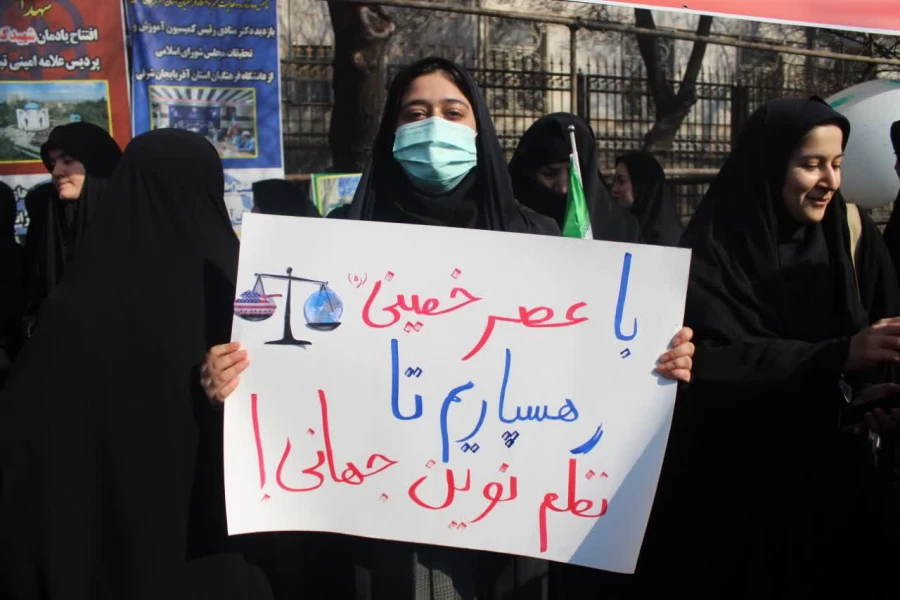 افتتاح یادمان شهید
پردیس علامه امینی
بازدید دکتر منادی رئیس کمیسیون آموزش و
تحقیقات مجلس شورای اسلامی
از دانشگاه فرهنگیان استان آذربایجان شرقی
با عصر خمینی(ره)
رهسپاریم تا
نظم نوین جهانی!